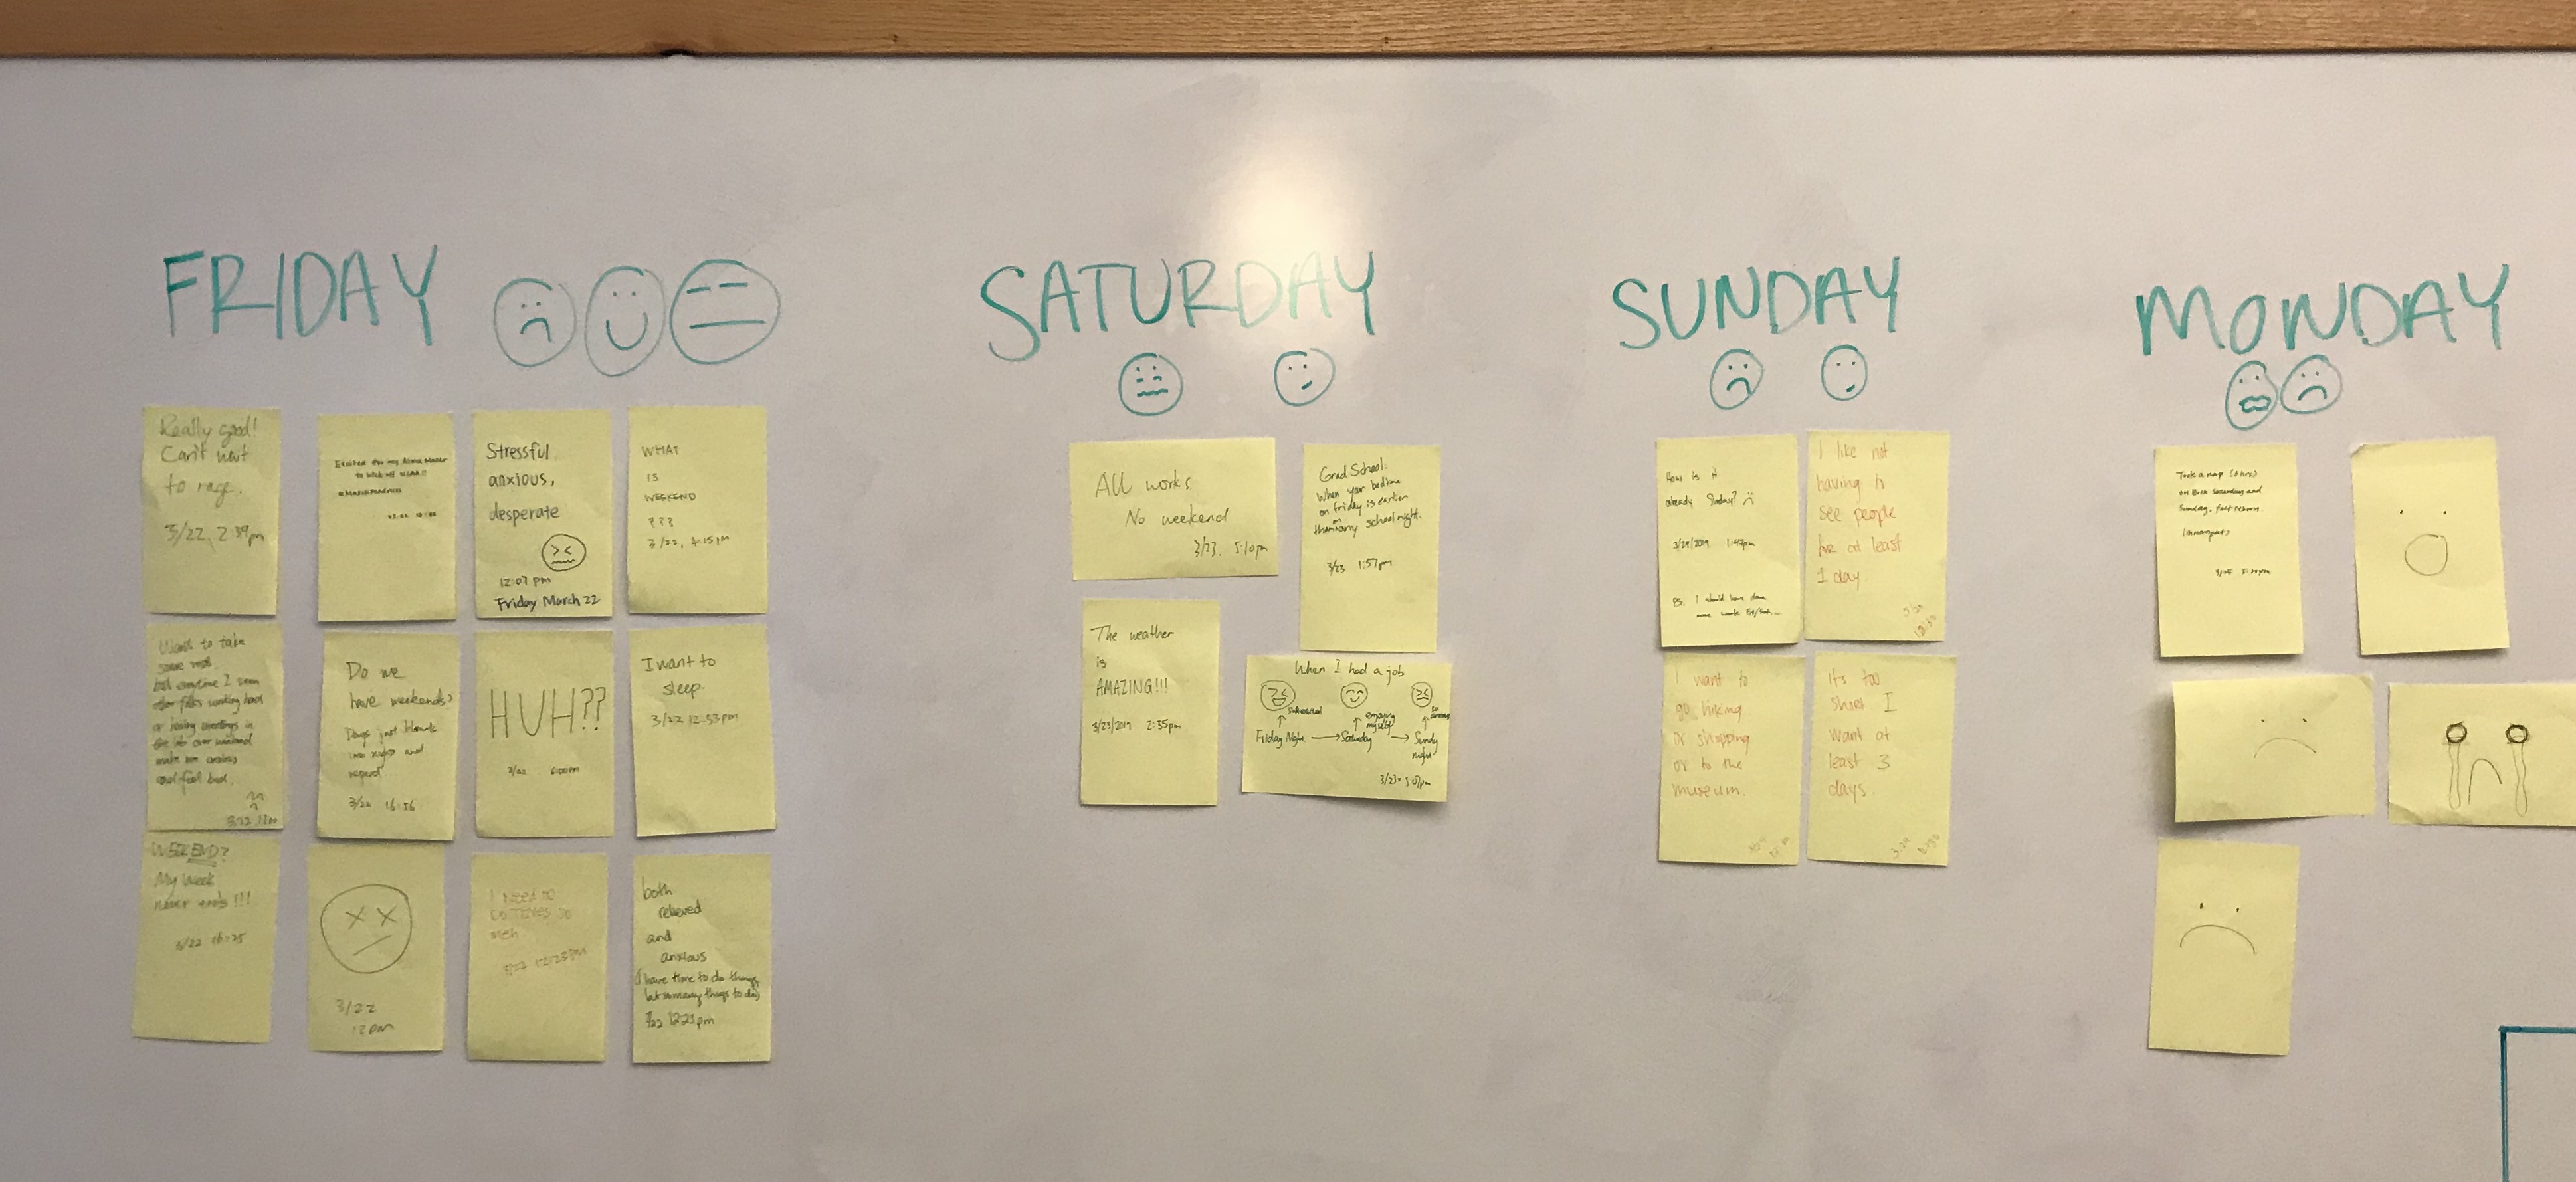 FRIDAY
Really good!
Can't wait
to rage.
3/22, 2:39pm
Excited for my Alma Mater
to kick off
Stressful,
anxious,
desperate
12:07 pm
Friday March 22
WHAT
IS
WEEKEND
???
3/22, 4:15pm
Want to take
some rest
but everytime I seen
other folks working hard
or having meetings in
the lab over weekend
make me anxious
and feel bad.
Do we
have weekends?
Days just blends
into nights and
repeat
3/22 16:56
HUH??
3/22 6:00pm
I want to
sleep.
3/22 12:53pm
WEEKEND?
My week
never ends!!!
3/22 16:25
3/22
12pm
I need to
so
meh
3/22 12:23pm
both
relieved
and
anxious
(have time to do things,
but so many things to do)
3/22 12:23pm
SATURDAY
All works
No weekend
3/23, 5:10pm
Grad School:
When your bedtime
on friday is earlier
than on any school night.
3/23 1:57pm
The weather
is
AMAZING!!!
3/23/2019 2:35pm
When I had a job
enjoying
myself
Friday Night → Saturday → Sunday
night
SUNDAY
How is it
already Sunday?
3/24/2019 1:47pm
PS: I should have done
more work
I like not
having to
see people
for at least
1 day.
I want to
go hiking
or shopping
or to the
museum.
It's too
short I
want at
least 3
days.
MONDAY
Took a nap
on both Saturday and
Sunday, felt reborn